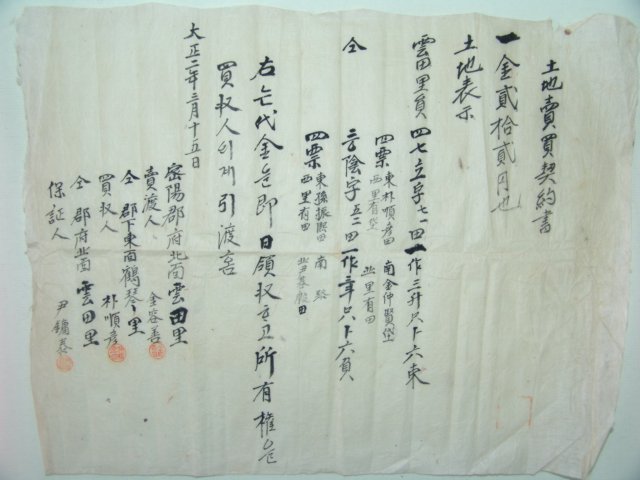 土地賣買契約書
一金貳拾貳円也
土地表示
雲田里員 四七 七一四 一作三升尺卜六束
四標 東朴順彦田 南金仲賢垈
西里有垈 北里有田
仝 陰字五二四 一作 尺卜六負
四標 東孫振 田 南路
西里有田 北尹 田
右 代金은即日領収 고所有權은
買収人이게引渡홈
大正二年三月十五日
密陽郡府北面雲田里
賣渡人 金容善
仝郡下東面鶴琴里
買収人 朴順彦
仝郡府北面雲田里
保証人 尹鏞泰